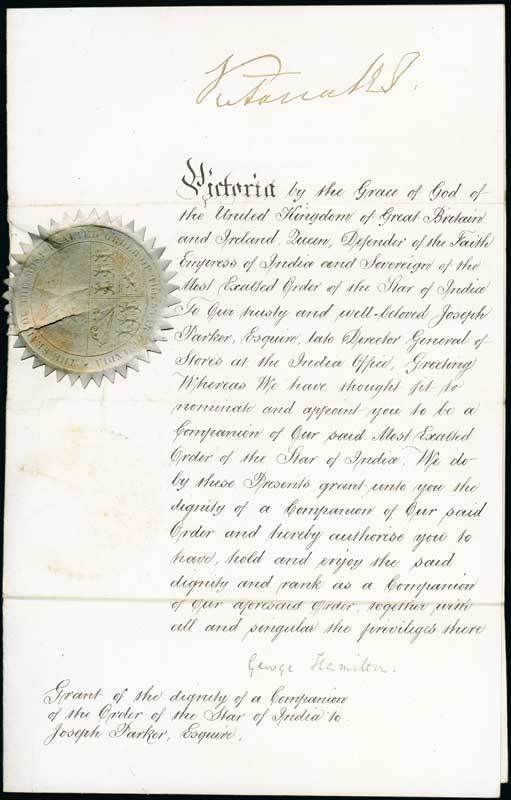 Victoria R I
Victoria by the Grace of God of
the United Kingdom of Great Britain
and Ireland, Queen, Defender of the Faith
Empress of India and Sovereign of the
Most Exalted Order of the Star of India
To Our trusty and well-beloved Joseph
Parker, Esquire, late Director General of
Stores at the India Office, Greeting
Whereas We have thought fit to
nominate and appoint you to be a
Companion of Our said Most Exalted
Order of the Star of India. We do
by these Presents grant unto you the
dignity of a Companion of Our said
Order and hereby authorise you to
have, hold and enjoy the said
dignity and rank as a Companion
of Our aforesaid Order, together with
all and singular the privileges there
George Hamilton.
Grant of the dignity of a Companion
of the Order of the Star of India to
Joseph Parker, Esquire.